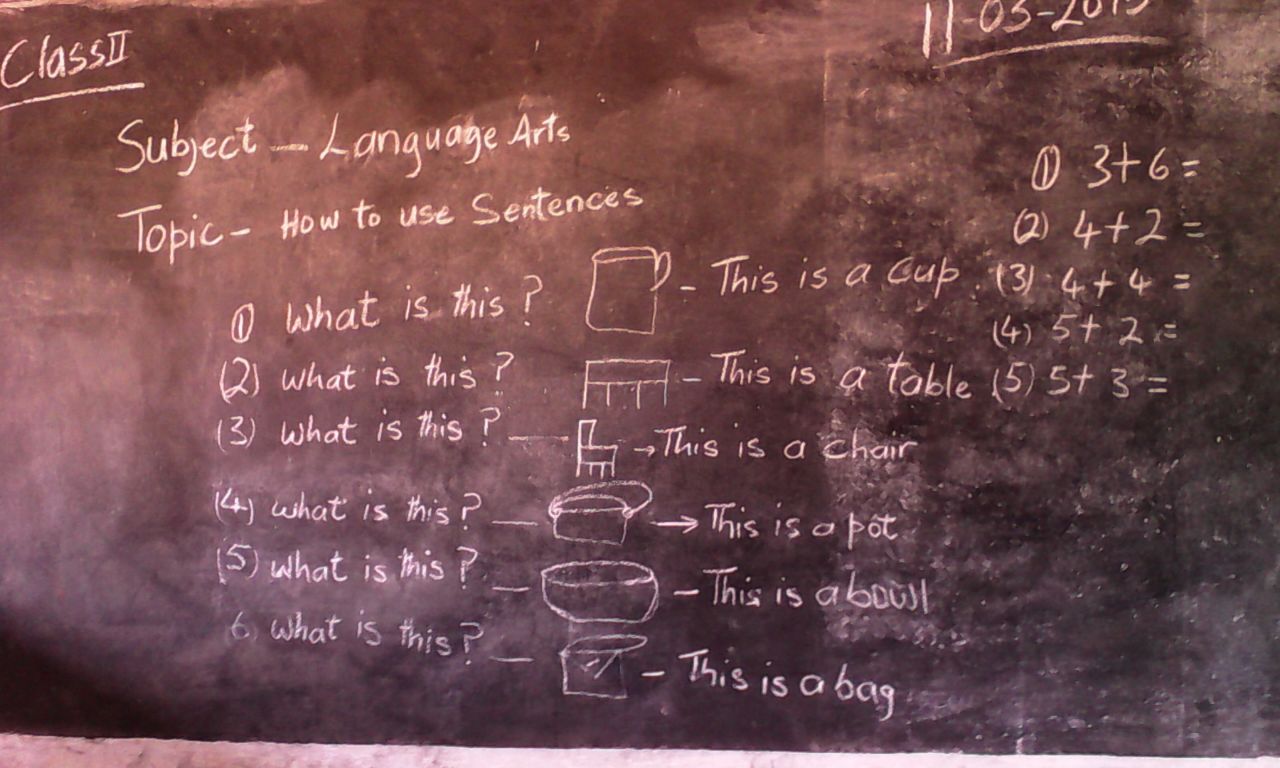 Class II
11-03-2015
Subject - Language Arts
Topic - How to use Sentences
① What is this? - This is a cup.
(2) what is this? - This is a table
(3) what is this? - This is a chair
(4) what is this? - This is a pot
(5) what is this? - This is a bowl
6 what is this? - This is a bag
① 3+6=
(2) 4+2=
(3) 4+4=
(4) 5+2=
(5) 5+3=